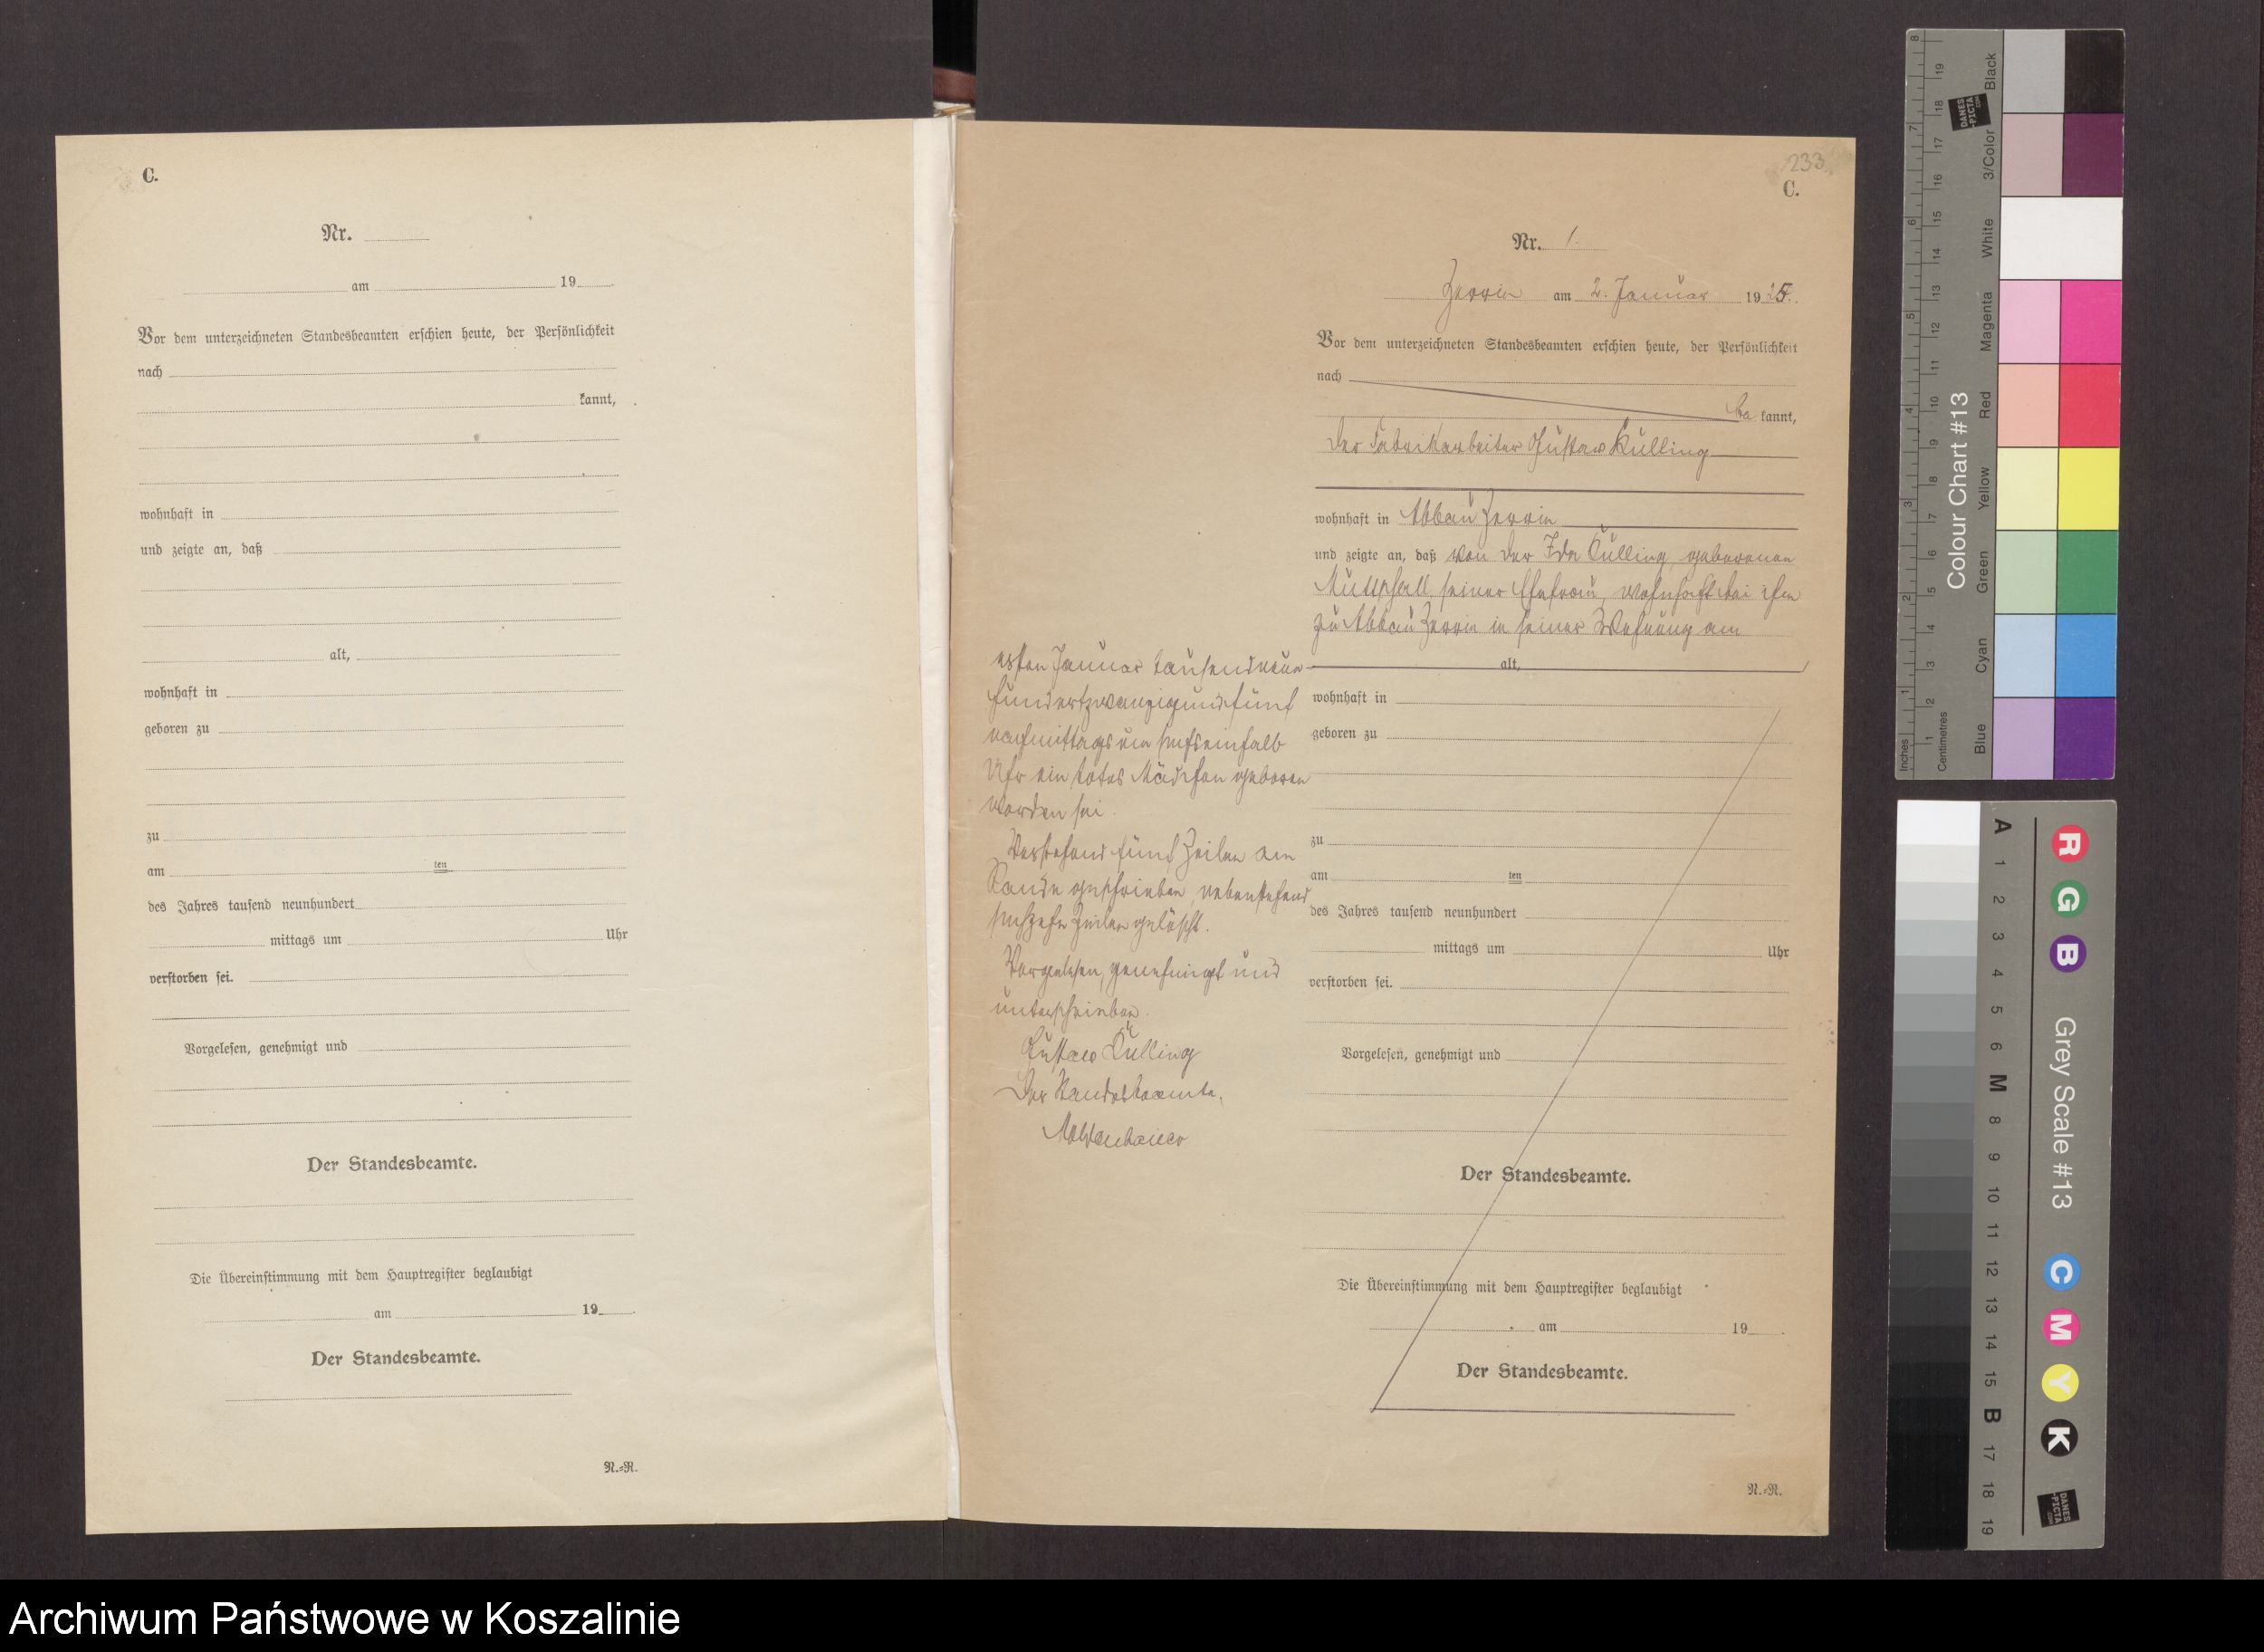 C.
Nr.
am 19
Vor dem unterzeichneten Standesbeamten erschien heute, der Persönlichkeit
nach
kannt,
wohnhaft in
und zeigte an, daß
alt,
wohnhaft in
geboren zu
zu
am ten
des Jahres tausend neunhundert
mittags um Uhr
verstorben sei.
Vorgelesen, genehmigt und
Der Standesbeamte.
Die Übereinstimmung mit dem Hauptregister beglaubigt
am 19
Der Standesbeamte.
N.=R.
233
C.
Nr. 1.
Zerrin am 2. Januar 1925.
Vor dem unterzeichneten Standesbeamten erschien heute, der Persönlichkeit
nach
be kannt,
der Fabrikarbeiter Gustav Külling
wohnhaft in Abbau Zerrin
und zeigte an, daß von der Ida Külling, geborenen
seiner Ehefrau, wohnhaft bei ihm
zu Abbau Zerrin in seiner Wohnung am
alt,
wohnhaft in
geboren zu
zu
am ten
des Jahres tausend neunhundert
mittags um Uhr
verstorben sei.
Vorgelesen, genehmigt und
Der Standesbeamte.
Die Übereinstimmung mit dem Hauptregister beglaubigt
am 19
Der Standesbeamte.
N.=R.
ersten Januar tausendneun
hundertzwanzigundfünf
nachmittags um sechseinhalb
Uhr ein totes Mädchen geboren
worden sei.
Vorstehend fünf Zeilen am
Rande geschrieben, nebenstehend
sechzehn Zeilen gelöscht.
Vorgelesen, genehmigt und
unterschrieben.
Gustav Külling
Der Standesbeamte.
Colour Chart #13
Black
3/Color
White
Magenta
Red
Yellow
Green
Cyan
Blue
Inches
Centimetres
DANES-PICTA.COM
R G B
Grey Scale #13
C M Y K
A 1 2 3 4 5 6 M 8 9 10 11 12 13 14 15 B 17 18 19
Archiwum Państwowe w Koszalinie